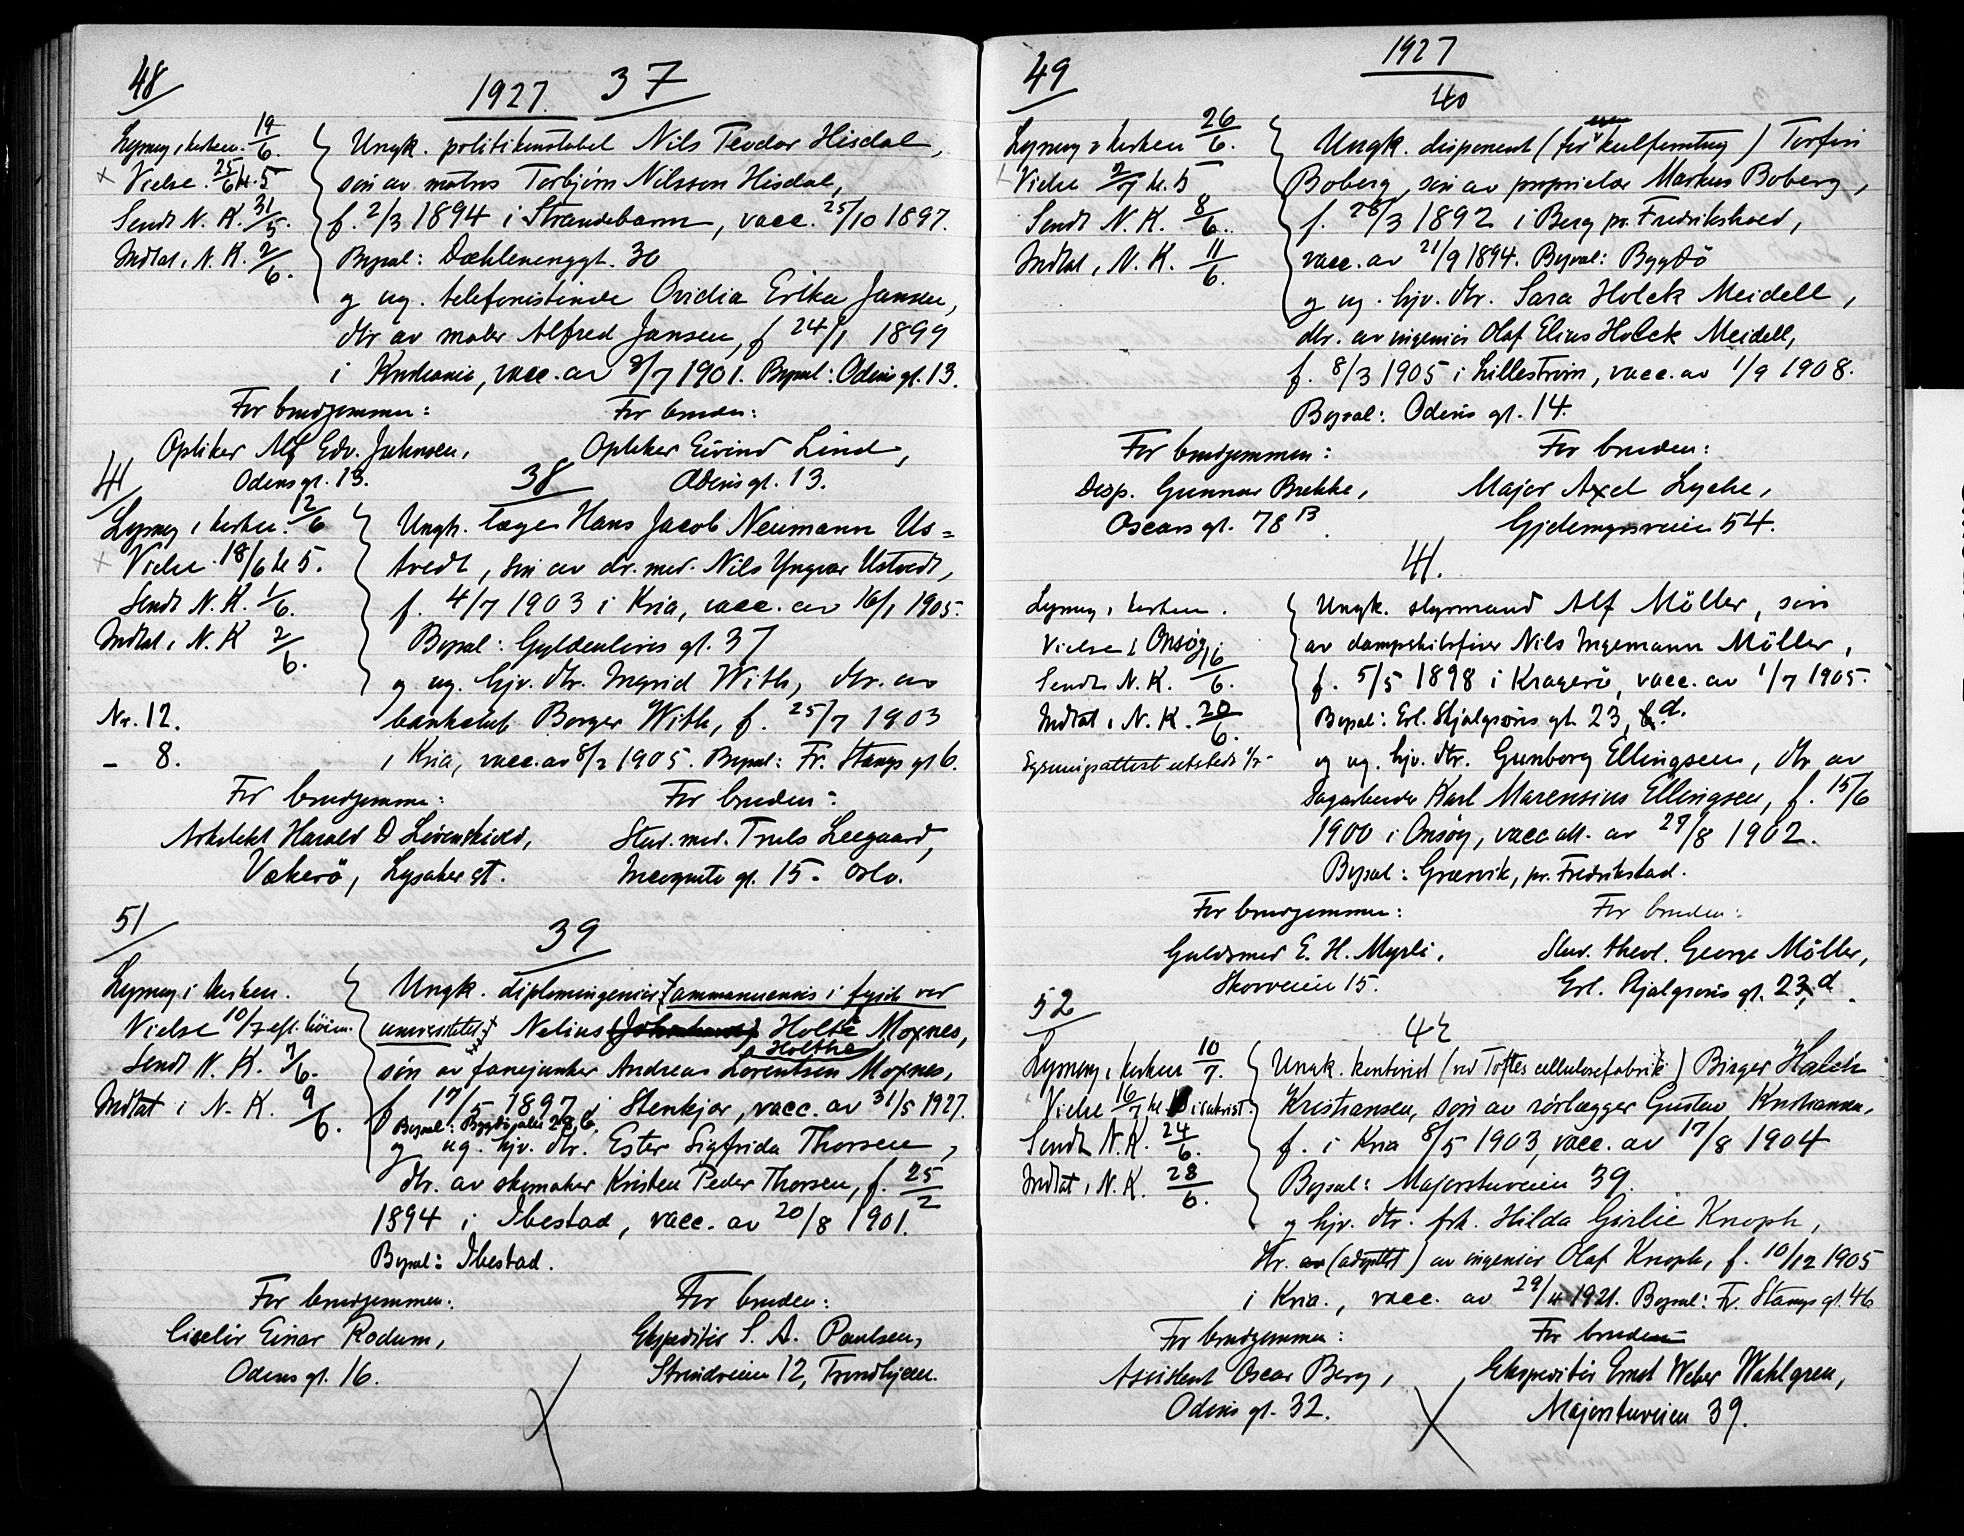 48
1927. 37
Lysning i kirken. 19/6.
× Vielse. 25/6 kl. 5
Sendt N. K. 31/5.
Indtat i N. K. 2/6.
Ungk. politikonstabel Nils Teodor Hisdal,
søn av matros Torbjørn Nilsson Hisdal,
f. 2/3 1894 i Strandebarm, vacc. 25/10 1897.
Bopæl: Dæhlenenggt. 30
og ug. telefonistinde Ovidia Erika Jansen,
dtr av maler Alfred Jansen, f 24/1 1899
i Kristiania, vacc. av 9/7 1901. Bopæl: Odins gt. 13.
For brudgommen: For bruden:
Optiker Alf Edv. Johnsen, Optiker Eivind Lind,
Odens gt. 13. Odins gt. 13.
41
38
Lysning i kirken. 12/6
× Vielse. 18/6 kl 5.
Sendt N. K. 1/6.
Indtat i N. K 2/6.
Nr. 12.
– 8.
Ungk. læge Hans Jacob Neumann Us=
tvedt, søn av dr. med. Nils Yngvar Ustvedt,
f. 4/7 1903 i Kria, vacc. av 16/1 1905.
Bopæl: Gyldenløves gt. 37
og ug. hjv. dtr. Ingrid With, dtr. av
Borger With, f. 25/7 1903
i Kria, vacc. av 8/2 1905. Bopæl: Fr. Stangs gt 6.
For brudgommen: For bruden:
Arkitekt Harald D Løvenskiold, Stud. med. Truls Leegaard,
Vækerö, Lysaker st. Incognito gt. 15. Oslo.
51
39
Lysning i kirken.
Vielse 10/7 eft. høim.
Sendt N. K. 7/6.
Indtat i N. K. 9/6.
Ungk. diplomingeniør (ammanuensis i fysik ved
universitetet) Nelius Holte Moxnes,
Holthe
søn av fanejunker Andreas Lorentsen Moxnes,
f 17/5 1897 i Stenkjær, vacc. av 31/5 1927.
Bopæl: Bygdø alle 28 b.
og ug. hjv. dtr. Ester Sigfrida Thorsen,
dtr. av skomaker Kristen Peder Thorsen, f. 25/2
1894 i Ibestad, vacc. av 20/8 1901.
Bopæl: Ibestad.
For brudgommen: For bruden:
Ciselør Einar Rodum, Ekspeditør S. A. Paulsen,
Odens gt. 16. Strindveien 12, Trondhjem.
49
1927
40
Lysning i kirken 26/6.
Vielse 2/7 kl. 5
Sendt N. K. 8/6.
Indtat i N. K. 11/6.
Ungk. disponent (for kulforretng) Torfin
Boberg, søn av proprietær Markus Boberg,
f. 28/3 1892 i Berg pr. Fredrikshald,
vacc. av 21/9 1894. Bopæl: Bygdö
og ug. hjv. dtr. Sara Holck Meidell,
dtr. av ingeniør Olaf Elias Holck Meidell,
f. 8/3 1905 i Lillestrøm, vacc. av 1/9 1908.
Bopæl: Odins gt. 14.
For brudgommen: For bruden:
Disp. Gunnar Brekke, Major Axel Lycke,
Oscars gt. 78 B. Gjdemyrsveien 54.
41.
Lysning i kirken.
Vielse i Onsøy.
Sendt N. K. 16/6.
Indtat i N. K. 20/6.
Lysningsattest utstedt 1/7
Ungk. styrmand Alf Möller, søn
av dampskibsfører Nils Ingemann Möller,
f. 5/5 1898 i Kragerö, vacc. av 1/7 1905.
Bopæl: Erl. Skjalgsøns gt. 23, d.
og ug. hjv. dtr. Gunborg Ellingsen, dtr av
Sagarbeider Karl Marensius Ellingsen, f. 15/6
1900 i Onsøy, vacc att. av 27/8 1902.
Bopæl: Græsvik, pr. Fredrikstad.
For brudgommen: For bruden:
Guldsmed E. H. Myrli, Stud. theol. George Möller,
Skovveien 15. Erl. Skjalgsøns gt. 23, d.
52
42
Lysning i kirken 10/7.
Vielse 16/7 kl. i sakrist.
Sendt N. K. 24/6.
Indtat i N. K. 28/6.
Ungk. kontorist (ved Toftes cellulosefabrik) Birger Hatch
Kristiansen, søn av rørlægger Gustav Kristiansen,
f. i Kria 8/5 1903, vacc. av 17/8 1904
Bopæl: Majorstuveien 39.
og hjv. dtr. frk. Hilda Girlie Knoph,
dtr. av (adoptert) av ingeniør Olaf Knoph, f. 10/12 1905
i Kria., vacc. av 29/4 1921. Bopæl: Fr. Stangs gt. 46
For brudgommen: For bruden
Assistent Oscar Berg, Ekspeditör Ernst Weber Wahlgren,
Odins gt. 32. Majorstuveien 39.